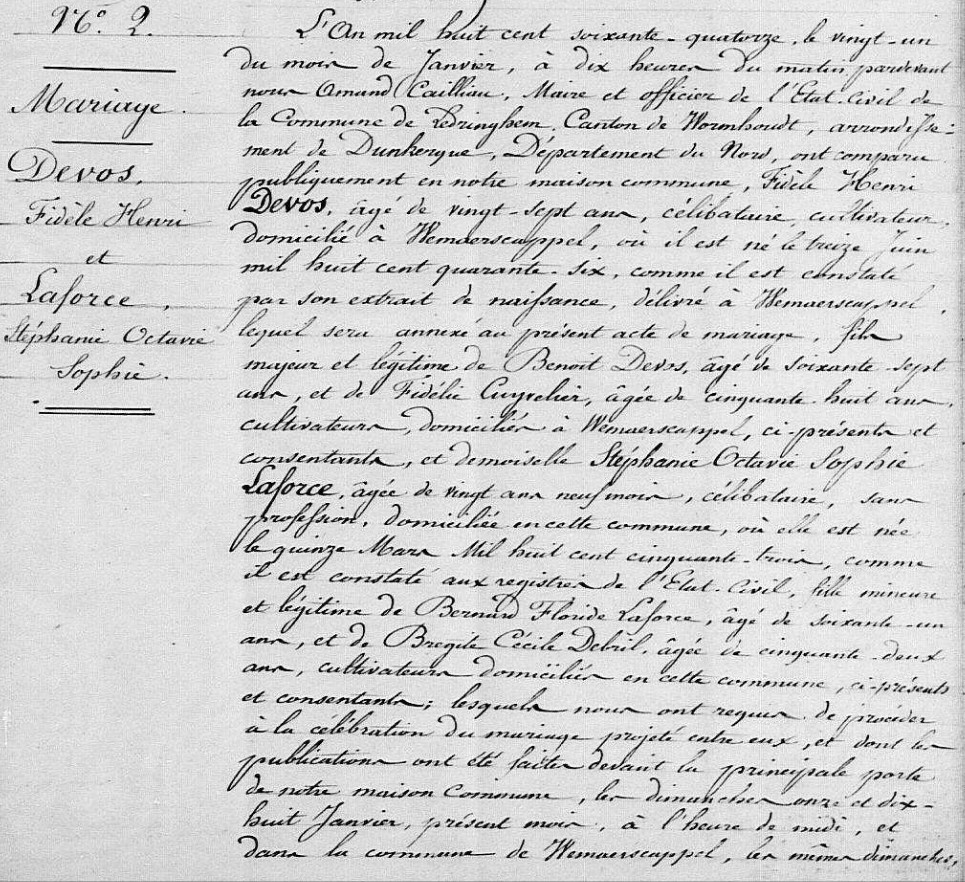 N.o 2.
Mariage.
Devos,
Fidèle Henri
et
Laforce,
Stéphanie Octavie
Sophie.
L'An mil huit cent soixante-quatorze, le vingt-un
du mois de Janvier, à dix heures du matin pardevant
nous Amand Cailliau, Maire et officier de l'Etat-Civil de
la Commune de Ledringhem, Canton de Wormhoudt, arrondisse=
ment de Dunkerque, Département du Nord, ont comparu
publiquement en notre maison commune, Fidèle Henri
Devos, âgé de vingt-sept ans, célibataire, cultivateur,
domicilié à Wemaerscappel, où il est né le treize Juin
mil huit cent quarante-six, comme il est constaté
par son extrait de naissance, délivré à Wemaerscappel,
lequel sera annexé au présent acte de mariage, fils
majeur et légitime de Benoit Devos, âgé de soixante-sept
ans, et de Fidélie Cuyrelier, âgée de cinquante-huit ans,
cultivateurs, domiciliés à Wemaerscappel, ci-présents et
consentants, et demoiselle Stéphanie Octavie Sophie
Laforce, âgée de vingt ans neuf mois, célibataire, sans
profession, domiciliée en cette commune, où elle est née
le quinze Mars Mil huit cent cinquante-trois, comme
il est constaté aux registres de l'Etat-Civil, fille mineure
et légitime de Bernard Floride Laforce, âgé de soixante-un
ans, et de Bregite Cécile Debril, âgée de cinquante-deux
ans, cultivateurs domiciliés en cette commune, ci-présents
et consentants; lesquels nous ont requis de procéder
à la célébration du mariage projeté entre eux, et dont les
publications ont été faites devant la principale porte
de notre maison Commune, les dimanches onze et dix-
huit Janvier, présent mois, à l'heure de midi, et
dans la commune de Wemaerscappel, les mêmes dimanches,